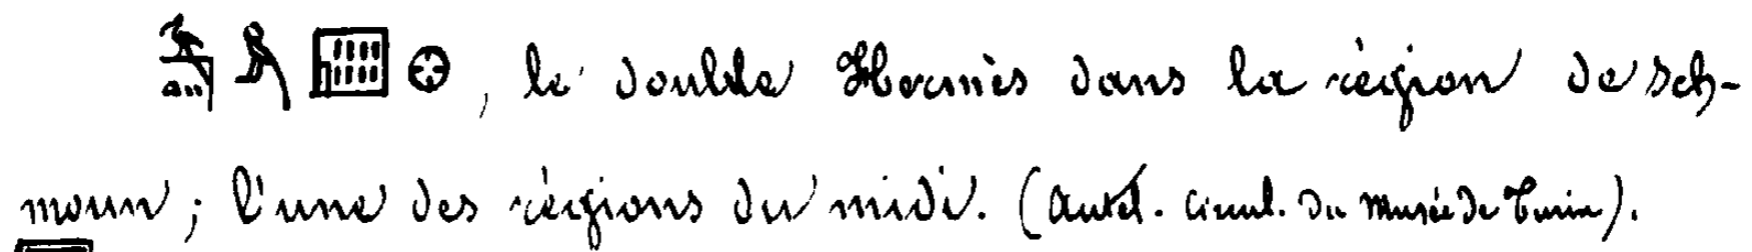 , le double Hermès dans la région de Sch-
moun; l'une des régions du midi. (autel. circul. du Musée de Turin).